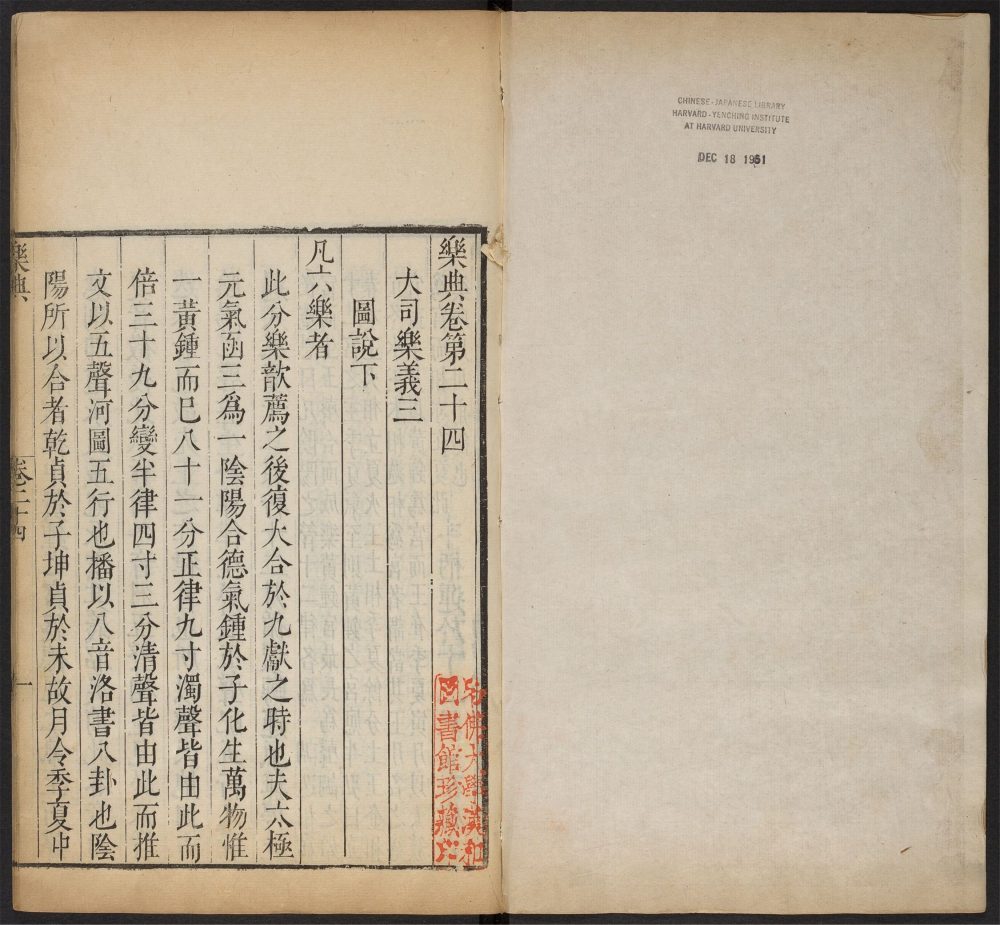 CHINESE-JAPANESE LIBRARY
HARVARD-YENCHING INSTITUTE
AT HARVARD UNIVERSITY
DEC 18 1951
樂典卷第二十四
大司樂義三
圖說下
凡六樂者
此分樂歆薦之後復大合於九獻之時也夫太極
元氣函三爲一陰陽合德氣鍾於子化生萬物惟
一黃鍾而已八十一分正律九寸濁聲皆由此而
倍三十九分變半律四寸三分清聲皆由此而推
文以五聲河圖五行也播以八音洛書八卦也陰
陽所以合者乾貞於子坤貞於未故月令季夏中
樂典
卷二十四
一
哈佛大學漢和
圖書館珍藏印